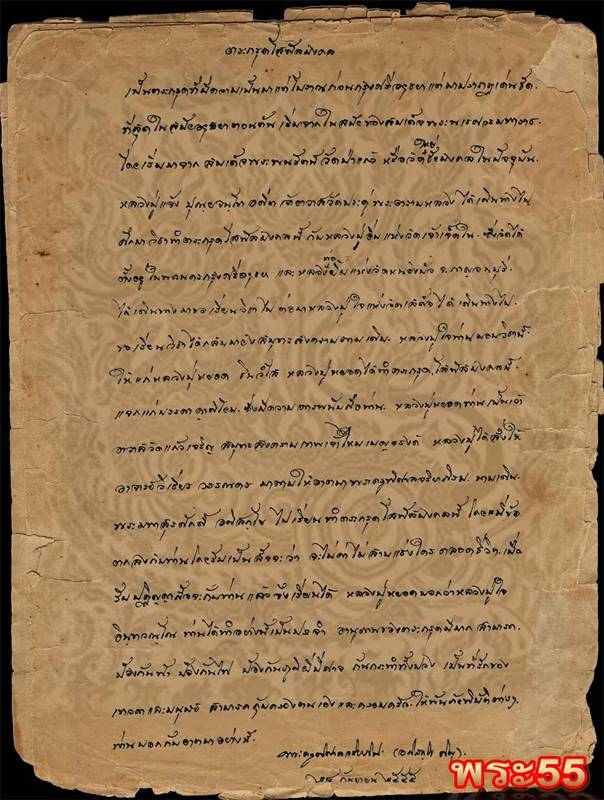 ตะกรุดโสฬสมงคล
เป็นตะกรุดที่มีความเป็นมาแต่โบราณก่อนกรุงศรีอยุธยาแต่มาปรากฏเด่นชัด
ที่สุดในสมัยอยุธยาตอนต้น เริ่มจากในสมัยของสมเด็จพระนเรศวรมหาราช
โดยเริ่มมาจาก สมเด็จพระพนรัตน์วัดป่าแก้ว หรือวัดใหญ่ชัยมงคล ในปัจจุบัน
หลวงปู่แจ้ง ปุณฺยจนฺโท อดีต เจ้าอาวาสวัดประดู่พระอารามหลวง ได้เดินทางไป
ศึกษาวิชาทำตะกรุดโสฬสมงคลนี้ กับหลวงปู่อิ่ม แห่งวัดเจ้าเจ็ดใน ซึ่งวัดได้
ตั้งอยู่ในพระนครศรีอยุธยา และหลวงพ่อยิ้มแห่งวัดหนองบัว จ.กาญจนบุรี
ได้เดินทางมาขอเรียนวิชาไป ต่อมาหลวงปู่ใจแห่งวัดเสด็จได้เดินทางไป
ขอเรียนวิชาได้กลับมายังสมุทรสงครามตามเดิม หลวงปู่ใจท่านมอบวิชานี้
ให้แก่หลวงปู่หยอด ชินวํโส หลวงปู่หยอดได้ทำตะกรุดโสฬสมงคลนี้
แจกแก่บรรดาลูกศิษย์ ซึ่งมีความเคารพนับถือท่าน หลวงปู่หยอดท่านเป็นเจ้า
อาวาสวัดแก้วเจริญ สมุทรสงคราม หลวงปู่ได้สั่งให้
อาจารย์วิเชียร มาตามให้อาตมาพระครูพิศาลจริยาภิรม นามเดิม
พระมหาสุรศักดิ์ อติสกฺโข ไปเรียนทำตะกรุดโสฬสมงคลนี้ โดยมีข้อ
ตกลงกับท่านโดยรับเป็นสัจจะว่า จะไม่ด่าไม่สาปแช่งใครตลอดชีวิต เมื่อ
รับปฏิญญาสัจจะกับท่านแล้วจึงเรียนได้ หลวงปู่หยอดบอกว่าหลวงปู่ใจ
อินฺทสุวณฺโณ ท่านได้ทำอย่างนี้เป็นประจำ อานุภาพของตะกรุดมีมาก สามารถ
ป้องกันฟ้า ป้องกันไฟ ป้องกันภูติผีปีศาจ กันกระทำทั้งปวง เป็นที่รักของ
เทวดาและมนุษย์ สามารถคุ้มครองตนเองและครอบครัว ให้พ้นภัยพิบัติต่างๆ
ท่านบอกกับอาตมาอย่างนี้
กันยายน ๒๕๕๕
พระ55